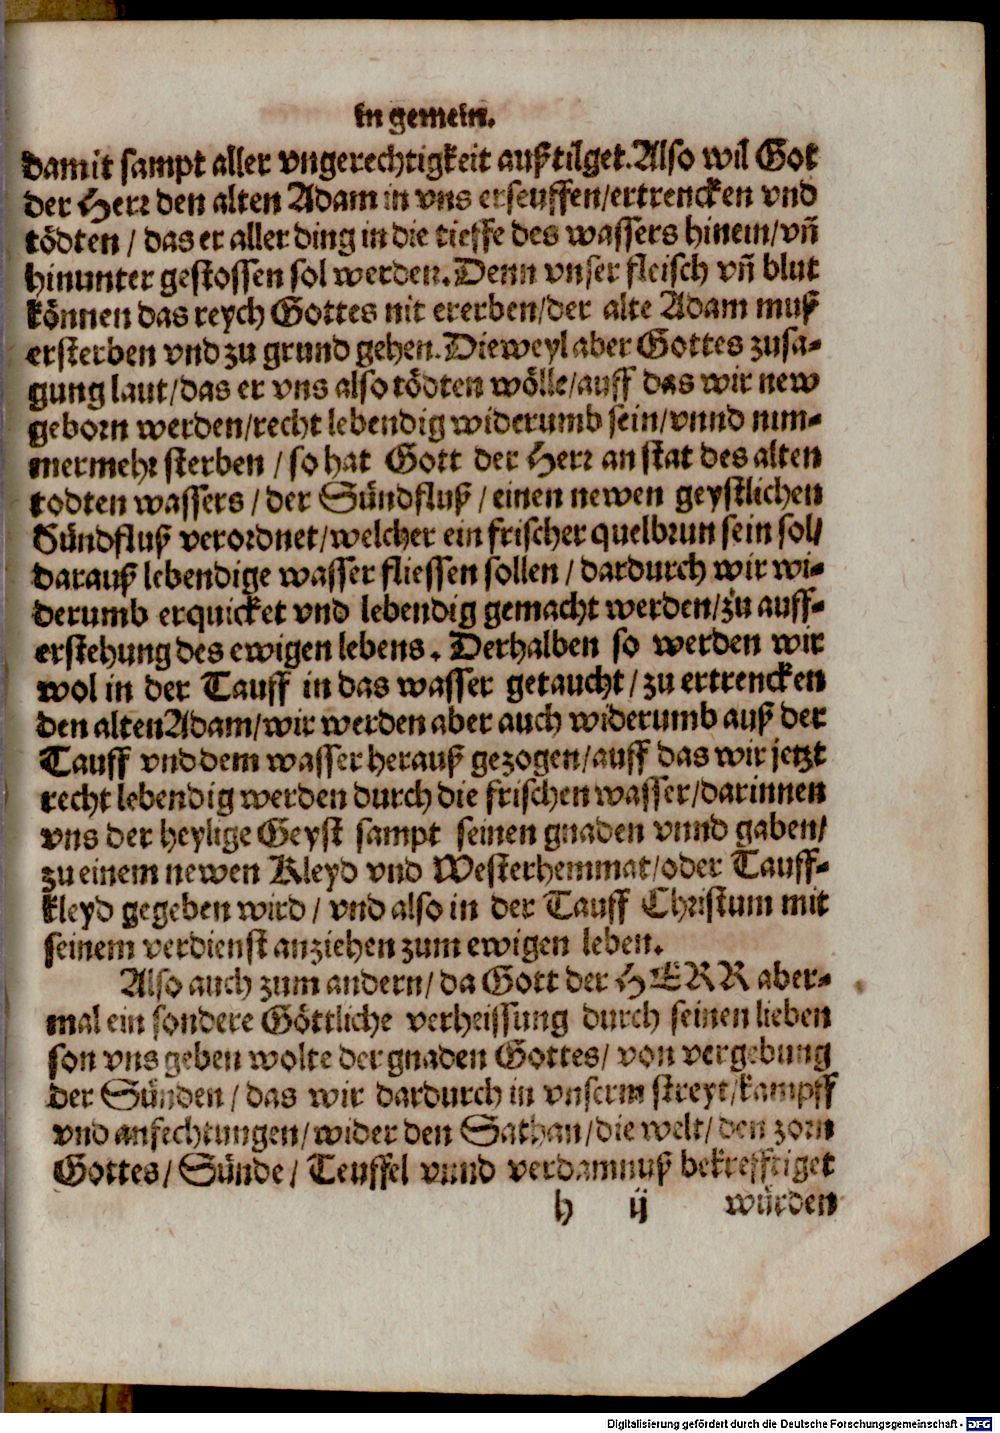 in gemein.
damit sampt aller vngerechtigkeit außtilget. Also wil Got
der Herr den alten Adam in vns erseuffen/ertrencken vnd
tödten / das er aller ding in die tieffe des wassers hinein/vñ
hinunter gestossen sol werden. Denn vnser fleisch vñ blut
können das reych Gottes nit ererben/der alte Adam muß
ersterben vnd zu grund gehen. Dieweyl aber Gottes zusa-
gung laut/das er vns also tödten wölle/auff das wir new
geborn werden/recht lebendig widerumb sein/vnnd nim-
mermehr sterben / so hat Gott der Herr an stat des alten
todten wassers / der Sündfluß / einen newen geystlichen
Sündfluß verordnet/welcher ein frischer quelbrun sein sol/
darauß lebendige wasser fliessen sollen / dardurch wir wi-
derumb erquicket vnd lebendig gemacht werden/zu auff-
erstehung des ewigen lebens. Derhalben so werden wir
wol in der Tauff in das wasser getaucht/ zu ertrencken
den alten Adam/wir werden aber auch widerumb auß der
Tauff vnd dem wasser herauß gezogen/auff das wir jetzt
recht lebendig werden durch die frischen wasser/darinnen
vns der heylige Geyst sampt seinen gnaden vnnd gaben/
zu einem newen Kleyd vnd Westerhemmat/oder Tauff-
kleyd gegeben wird / vnd also in der Tauff Christum mit
seinem verdienst anziehen zum ewigen leben.
Also auch zum andern/ da Gott der HERR aber-
mal ein sondere Göttliche verheissung durch seinen lieben
son vns geben wolte der gnaden Gottes/ von vergebung
der Sünden / das wir dardurch in vnserm streyt/kampff
vnd anfechtungen/wider den Sathan/die welt/den zorn
Gottes/ Sünde/ Teuffel vnnd verdamnuß bekrefftiget
h ij würden
Digitalisierung gefördert durch die Deutsche Forschungsgemeinschaft - DFG